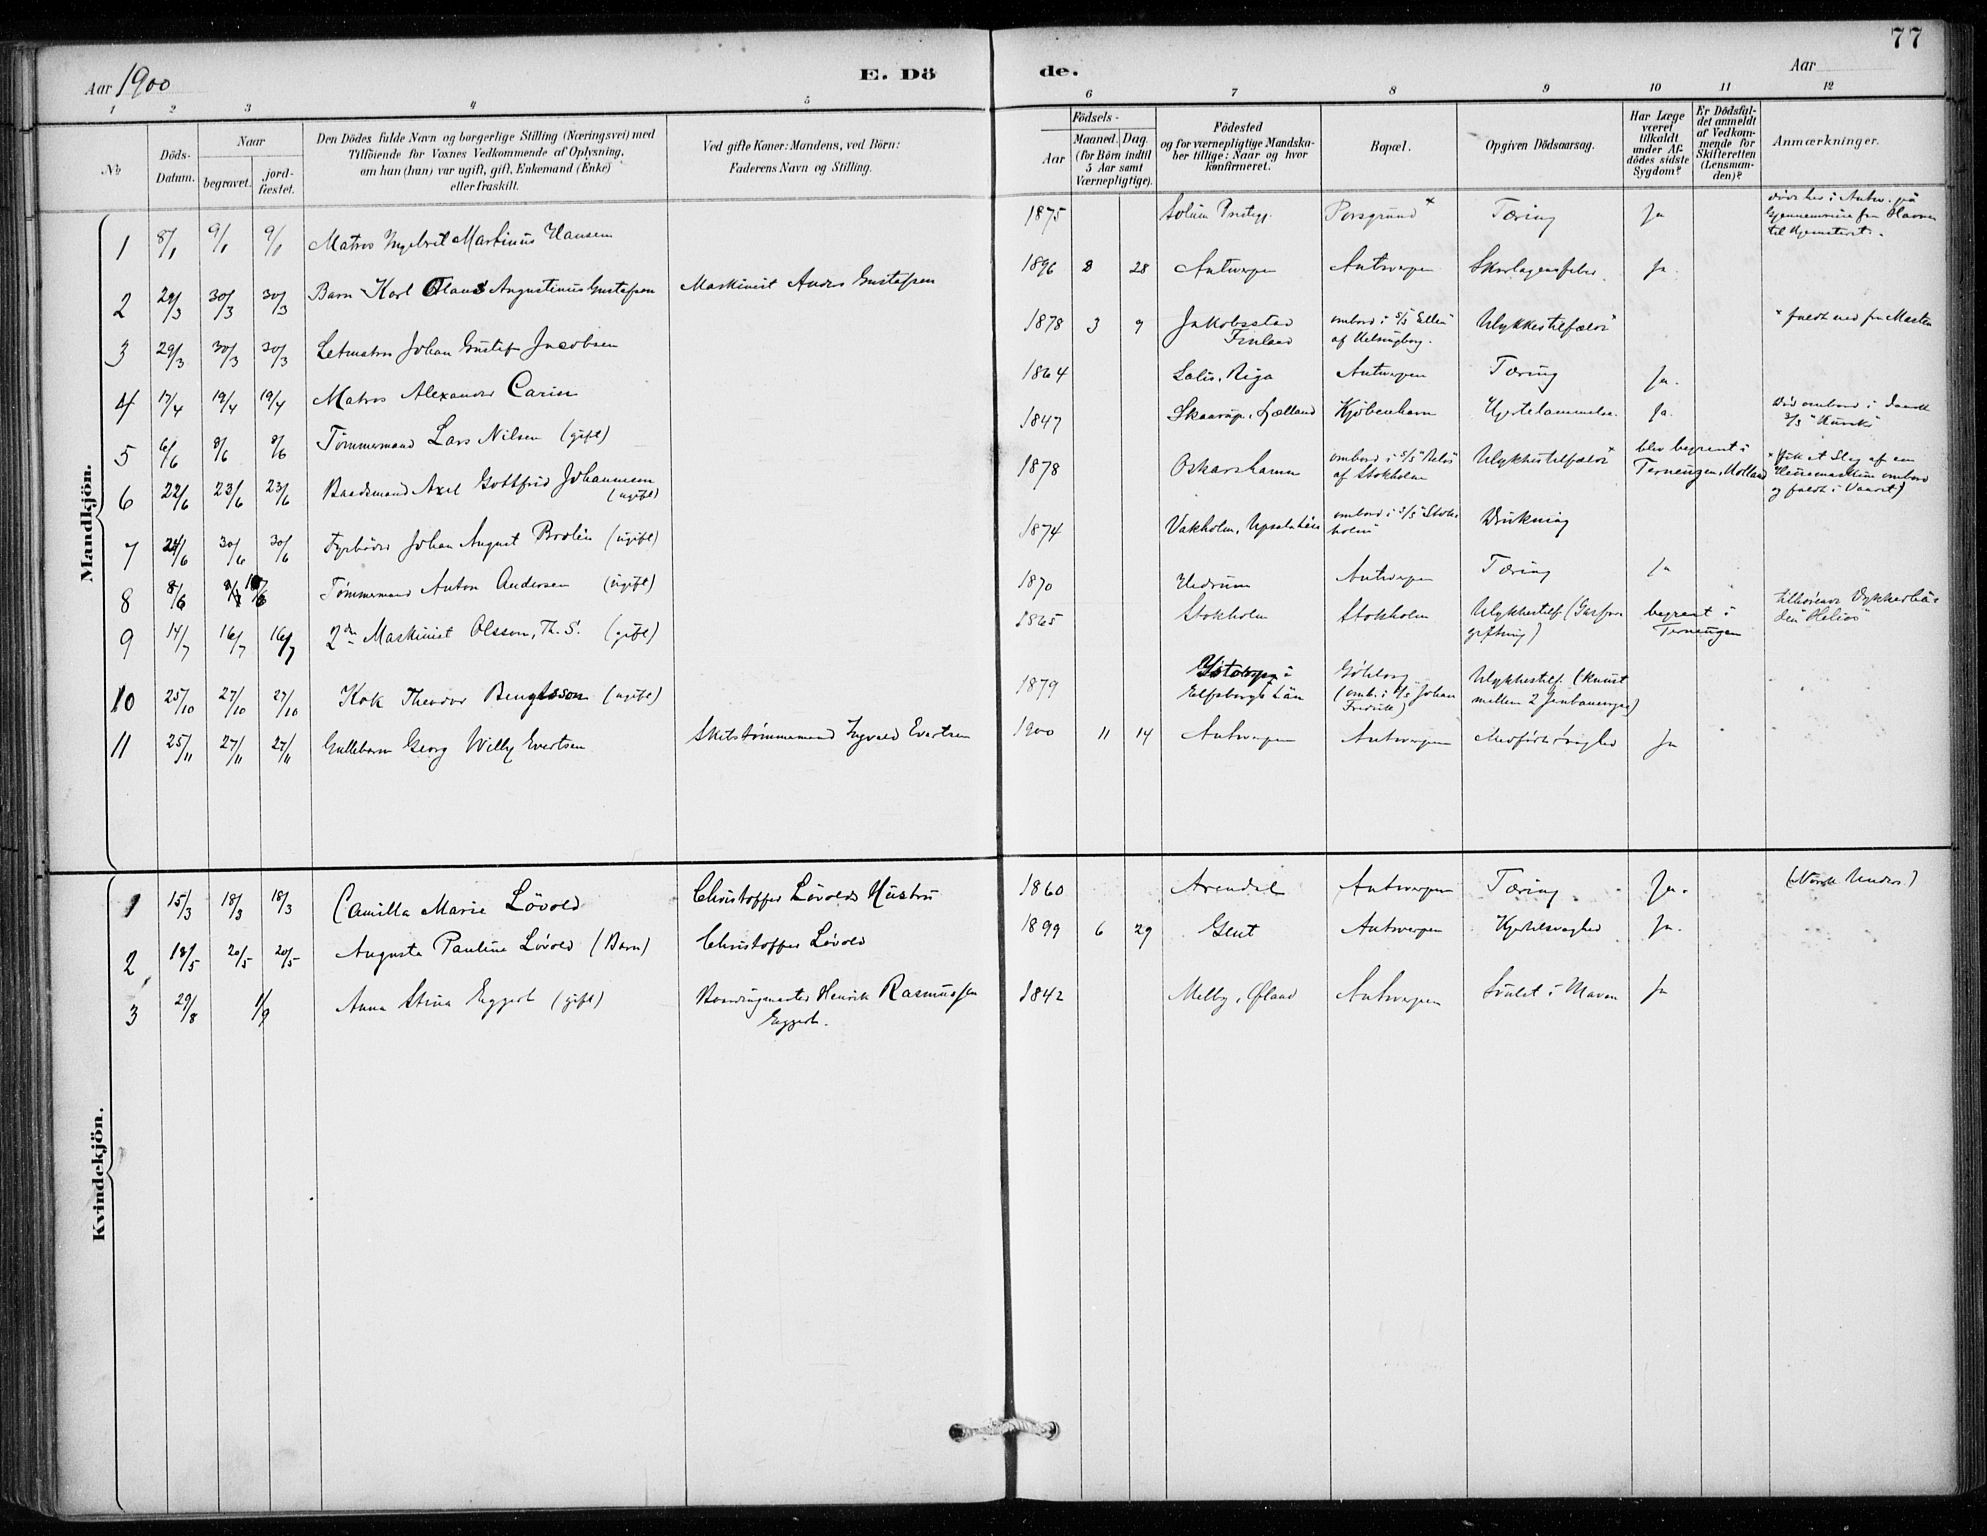 77
Aar 1900
E. Dö de.
Aar
1 2 3 4 5 6 7 8 9 10 11 12
No
Döds-Datum.
Naar
begravet.
jord-fæstet.
Den Dödes fulde Navn og borgerlige Stilling (Næringsvei) med
Tilföiende for Voxnes Vedkommende af Oplysning,
om han (hun) var ugift, gift, Enkemand (Enke)
eller fraskilt.
Ved gifte Koner: Mandens, ved Börn:
Faderens Navn og Stilling.
Födsels-
Aar
Maaned. Dag.
(for Börn indtil
5 Aar samt
Værnepligtige).
Födested
og for værnepligtige Mandska-
ber tillige: Naar og hvor
konfirmeret.
Bopæl.
Opgiven Dödsaarsag.
Har Læge
været
tilkaldt
under Af-
dödes sidste
Sygdom?
Er Dödsfal-
det anmeldt
af Vedkom-
mende for
Skifteretten
(Lensman-
den)?
Anmærkninger.
Mandkjön.
1 8/1 9/1 9/1 Matros Ingebret Martinus Hansen 1875 Solum Prstgj. Porsgrund x Tæring Ja
døde hos i Antw. på
Gjennemreise fra Havren
til Hjemstedet.
2 29/3 30/3 30/3 Barn Karl Olaus Augustinus Gustafsen Maskinist Anders Gustafsen 1896 8 28 Antwerpen Antwerpen Skarlagensfeber Ja.
3 29/3 30/3 30/3 Letmatros Johan Gustaf Jacobsen 1878 3 9 Jakobsstad Finland ombord i S/S "Ellen" af Helsingborg. Ulykkestilfælde x x faldt ned fra Masten
4 17/4 19/4 19/4 Matros Alexander Carin 1864 Salis, Riga Antwerpen Tæring Ja.
5 6/6 8/6 8/6 Tømmermand Lars Nilsen (gift) 1847 Skaarup, Sjælland Kjøbenhavn Hjertelammelse Ja. Død ombord i dansk S/S "Kursk"
6 22/6 23/6 23/6 Baadsmand Axel Gottfrid Johannesen (ugift) 1878 Oskarshamn ombord i S/S af Stokholm Ulykkestilfælde x blev begravet i Terneuzen, Holland
x fik et Slag af en
Heisemaskin ombord
og faldt i Vandet)
7 24/6 30/6 30/6 Fyrbøder Johan August Brolin (ugift) 1874 Vakholm, Upsala Län ombord i S/S "Stokholm" Drukning
8 8/6 Tømmermand Anton Andersen (ugift) 1870 Hedrum Antwerpen Tæring Ja
9 14/7 16/7 16/7 2den Maskinist Olsson, Th. S. (gift) 1865 Stokholm Stokholm Ulykkestilf (Gasforgiftning) begravet i Terneuzen tilhørende Dykkerbåden "Helios"
10 25/10 27/10 27/10 Kok Theodor Bengtsson (ugift) 1879 Elfsborgs Län Göteborg (omb. i S/S Johan Fredrik) Ulykkestilf. (knust mellem 2 Jernbanevogne)
11 25/11 27/11 27/11 Gullebarn Georg Willy Evertsen Skibstømmermand Ingvald Evertsen 1900 11 14 Antwerpen Antwerpen Medfødt svaghed Ja
Kvindekjön.
1 15/3 18/3 18/3 Camilla Marie Lövold Christoffer Lövolds Hustru 1860 Arendal Antwerpen Tæring Ja. (Norsk Unders.)
2 18/5 20/5 20/5 Augusta Pauline Lövold (Barn) Christoffer Lövold 1899 6 29 Gent Antwerpen Hjertesvaghed Ja.
3 29/8 1/9 Anna Stina Eggert (gift) Boardingmaster Henrik Rasmussen Eggert. 1842 Melby, Øland Antwerpen Svulst i Maven Ja